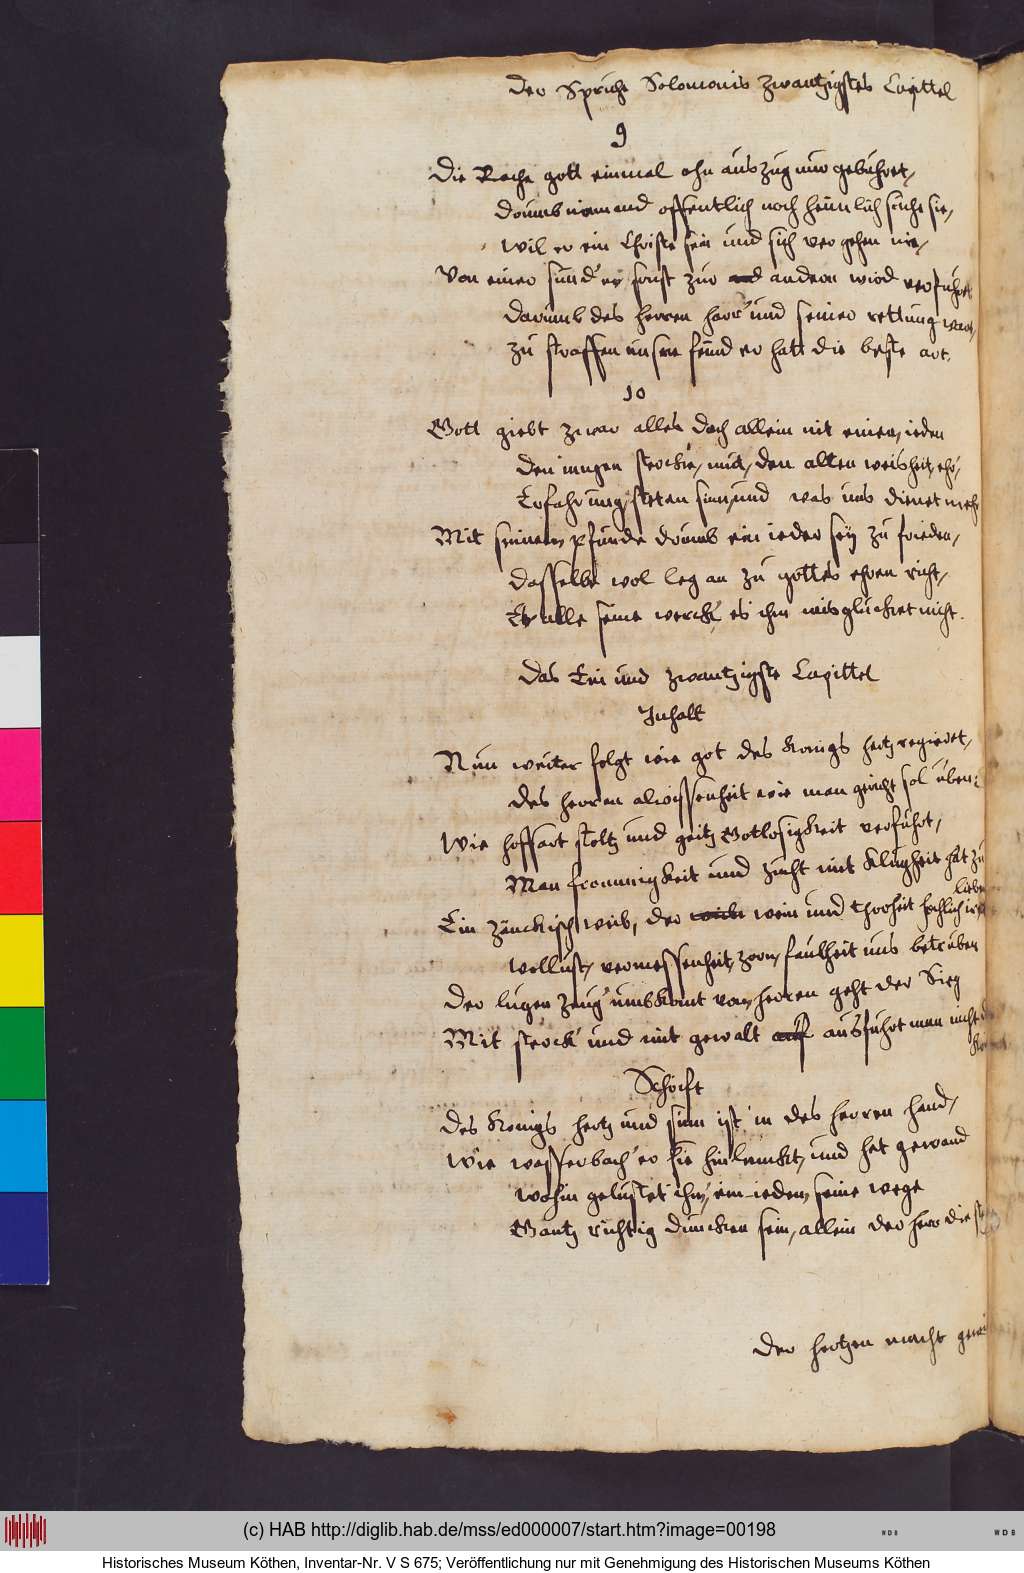 Der Spruche Solomonis zwantzigstes Capittel
9
Die Rache gott einmal ohn auszug nur gebuhret,
drumb niemand offentlich noch heimlich suche sie,
wil er ein Christe sein und sich vergehen nie,
Von einer sund' er sonst zur andern wird verfuhret
darumb des herren harr' und seiner rettung wart,
zu straffen unsre feind er hatt die beste art.
10
Gott giebt zwar alles doch allein nit einem ieden
den iungen stercke, mut, den alten weisheit, ehr,
Erfahrung, steten sinn, und was uns dienet mehr
Mit seinem pfunde drumb ein ieder sey zu frieden,
dasselbe wol leg an zu gottes ehren richt,
Er alle seine werck', es ihm misglucket nicht.
Das Ein und zwantzigste Capittel
Inhalt
Nun weiter folgt wie got des Konigs hertz regieret,
des herren alwissenheit wie man gericht sol uben:
Wie hoffart stoltz und geitz Gotlosigkeit verfuhrt,
Man frommigkeit und zucht mit Klugheit hat zu
lieben
Ein zänckisch weib, der wein und thorheit
wollust, vermessenheit, zorn, faulheit uns betruben
Der lugen zeug' umbkomt vom herren geht der Sieg
Mit sterck' und mit gewalt ausfuhrt man nicht
Schrift
Des Konigs hertz und sinn ist in des herren hand,
Wie wasserbach' er sie hinlenckt, und hat gewand
wohin gelustet ihm, ein iedem seine wege
Gantz richtig duncken sein, allein der herr die
Der hertzen macht
(c) HAB http://diglib.hab.de/mss/ed000007/start.htm?image=00198
WDB
WDB
Historisches Museum Köthen, Inventar-Nr. V S 675; Veröffentlichung nur mit Genehmigung des Historischen Museums Köthen